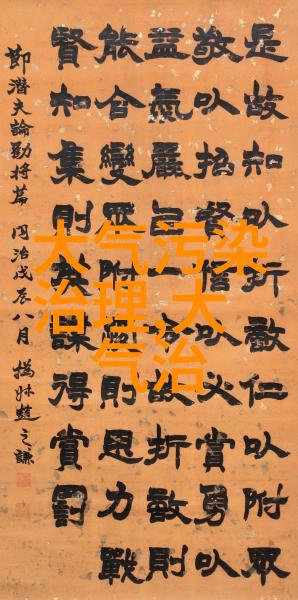 大气污染
治理,大
气治
是故知以折敵仁以附眾
敬以招賢信以必賞勇以
益氣嚴以一令故折敵則
能合變眾附愛則思力戰
賢知集則謀得賞罰
節潛夫論勸將篇 同治戊辰八月 撝叔趙之謙